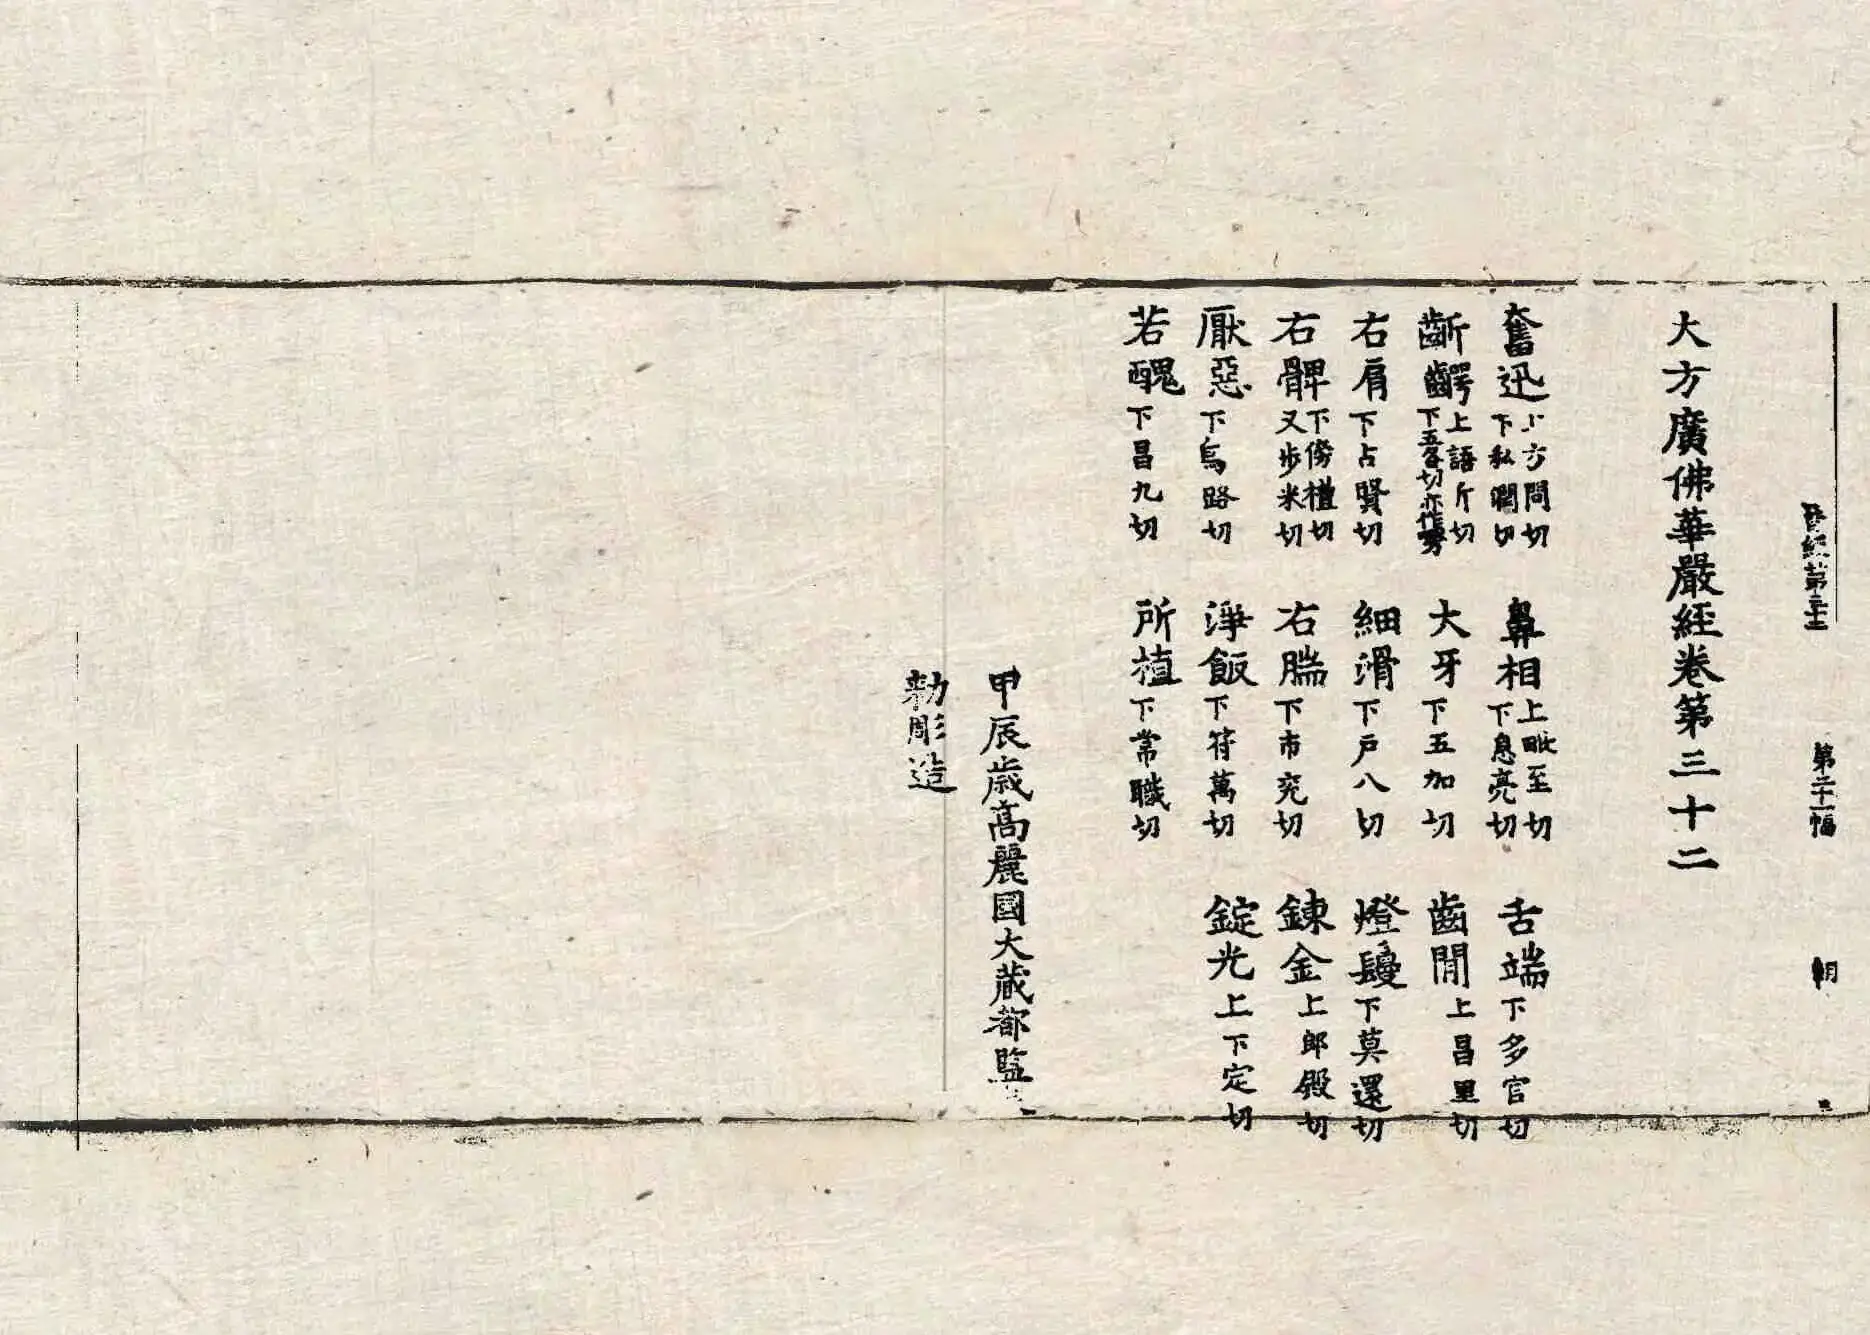 晉經第三十二 第二十一幅 朝
大方廣佛華嚴經卷第三十二
奮迅上方問切下私閏切 鼻相上毗至切下息亮切 舌端下多官切
齗齶上語斤切下五各切亦作 大牙下五加切 齒閒上昌里切
右肩下占賢切 細滑下戶八切 燈鬘下莫還切
右髀下傍禮切又步米切 右腨下市兖切 鍊金上郎殿切
厭惡下烏路切 淨飯下符萬切 錠光上下定切
若醜下昌九切 所植下常職切
甲辰歲高麗國大藏都監奉
勑彫造